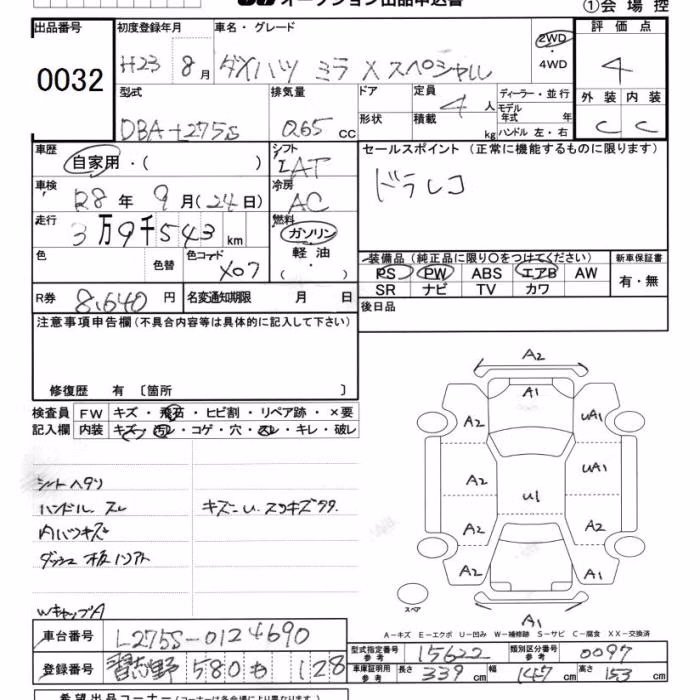 オークション出品申込書
①会場控
出品番号 0032
初度登録年月 H23 8月
車名・グレード ダイハツ ミラ X スペシャル
2WD・4WD
評価点 4
外装 C 内装 C
型式 DBA-L275S
排気量 0.65 cc
ドア
形状
定員 4人
積載 kg
ディーラー・並行
モデル年式 年
ハンドル 左・右
車歴 自家用・( )
シフト IAT
セールスポイント (正常に機能するものに限ります)
ドラレコ
車検 R8年9月(24日)
冷房 AC
走行 3万9千543km
燃料 ガソリン・軽油・( )
色 色替 色コード X07
装備品 (純正品に限り○をつけてください)
PS PW ABS エアB AW
SR ナビ TV カワ
新車保証書 有・無
R券 8,640円
名変通知期限 月 日
後日品
注意事項申告欄 (不具合内容等は具体的に記入して下さい)
修復歴 有 〔箇所 〕
検査員記入欄
FW キズ・飛石・ヒビ割・リペア跡・×要
内装 キズ・汚レ・コゲ・穴・スレ・キレ・破レ
シートヘタリ
ハンドル スレ
キズ凹U.スリキズタタ.
内バリキズ
Wキャップ A
A2
A1
A2 UA1
A2 UA1
U1
A2 A2
A2 A1
スペア
A1
A-キズ E-エクボ U-凹み W-補修跡 S-サビ C-腐食 XX-交換済
車台番号 L275S-0124690
登録番号 習志野 580 も 128
型式指定番号 参考 15622
類別区分番号 参考 0097
車庫証明用 参考 長さ 339cm 幅 147cm 高さ 153cm
希望出品コーナー (コーナーは各会場により異なります)